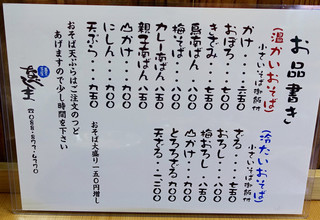 お品書き
(温かいおそば)
小さいそば御飯付
かけ・・・六五〇
おぼろ・・・七〇〇
きざみ・・・七五〇
鳥南ばん・・八五〇
梅そば・・・八〇〇
カレー南ばん・八五〇
親子南ばん・・九〇〇
山かけ・・・九〇〇
にしん・・・九五〇
天ぷら・・・九五〇
(冷たいおそば)
小さいそば御飯付
ざる・・・七五〇
おろし・・・八〇〇
梅おろし・・八五〇
山かけ・・・九〇〇
とろろざる・九〇〇
天ざる・・一二〇〇
おそば大盛り一五〇円増し
おそば天ぷらはご注文のつど
あげますので少し時間を下さい